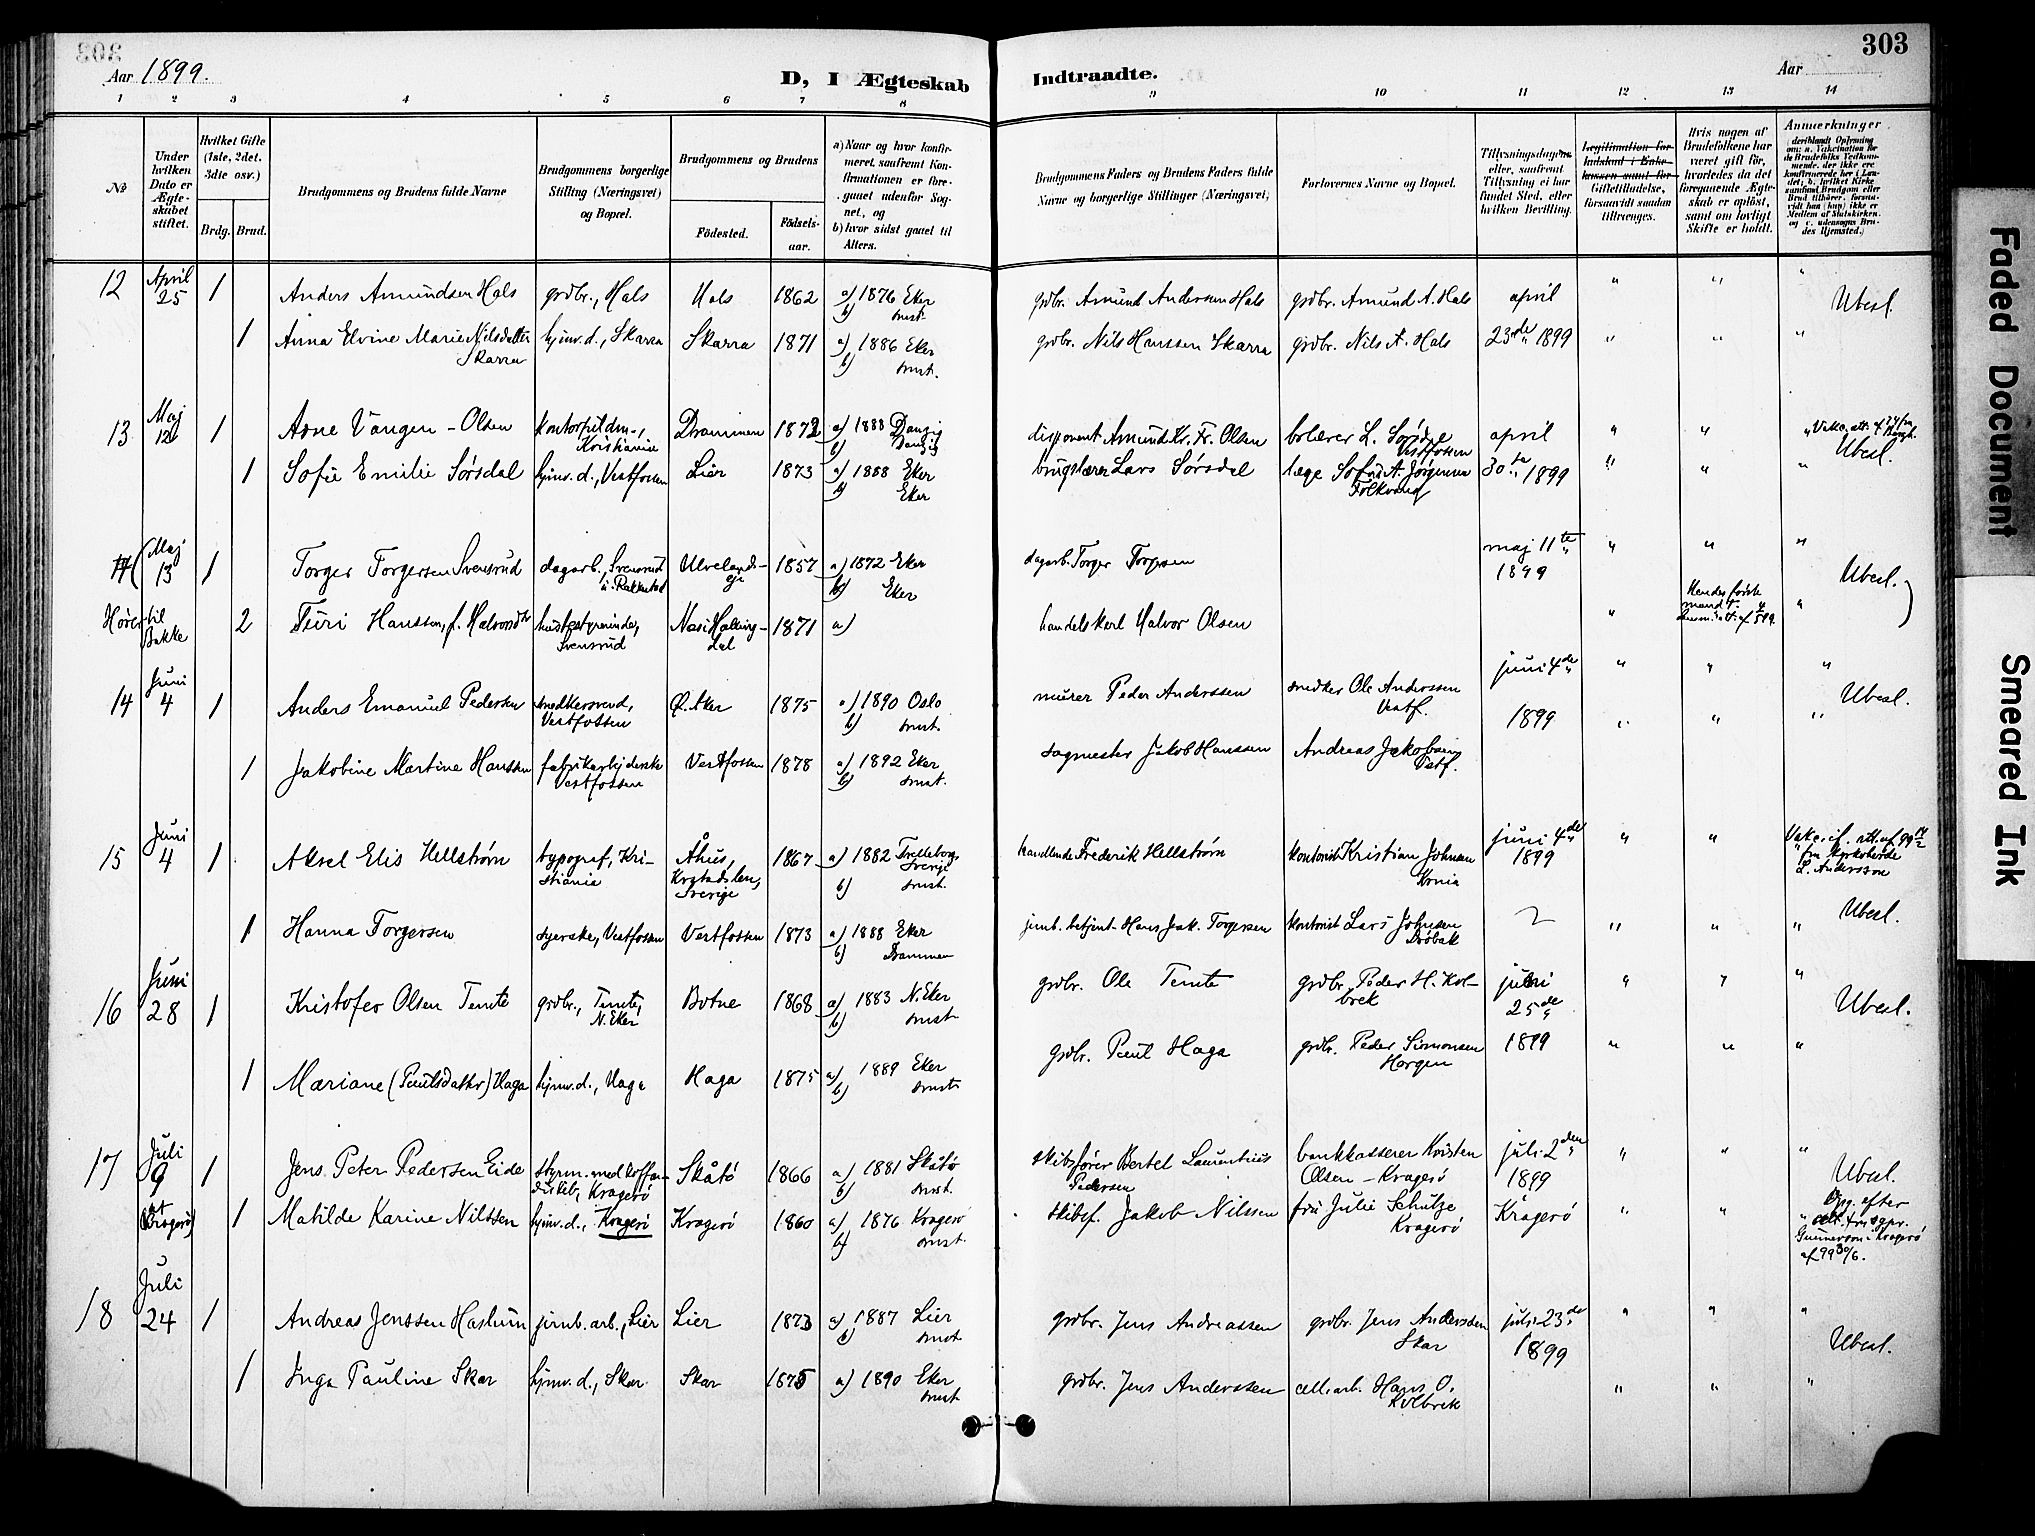 303
Aar 1899.
D, I Ægteskab Indtraadte.
Aar
1 2 3 4 5 6 7 8 9 10 11 12 13 14
No
Under hvilken Dato er Ægteskabet stiftet.
Hvilket Gifte (1ste, 2det, 3die osv.)
Brdg. Brud.
Brudgommens og Brudens fulde Navne
Brudgommens borgerlige Stilling (Næringsvei) og Bopæl.
Brudgommens og Brudens
Födested. Födselsaar.
a) Naar og hvor konfirmeret, saafremt Konfirmationen er foregaaet udenfor Sognet, og
b) hvor sidst gaaet til Alters.
Brudgommens Faders og Brudens Faders fulde Navne og borgerlige Stillinger (Næringsvei)
Forlovernes Navne og Bopæl.
Tillysningsdagene eller, saafremt Tillysning ei har fundet Sted, efter hvilken Bevilling.
Giftetilladelse, forsaavidt saadan tiltrænges.
Hvis nogen af Brudefolkene har været gift för, hvorledes da det foregaaende Ægteskab er oplöst, samt om lovligt Skifte er holdt.
Anmerkninger
12 April 25 1 Anders Amundsen Hals grdbr., Hals Hals 1862 a) 1876 Eker b) smst. grdbr. Amund Andersen Hals grdbr. Amund A. Hals april " " " Ubesl.
1 Anna Elvine Marie Nilsdatter Skarra hjmv.d., Skarra Skarra 1871 a) 1886 Eker b) smst. grdbr. Nils Hanssen Skarra grdbr. Nils A. Hals 23de 1899 " " "
13 Maj 12 1 Arne Vangen-Olsen kontorfuldm., Kristiania Drammen 1872 a) 1888 Danzig b) Danzig disponent Amund Kr. Fr. Olsen april " " Ubesl.
1 Sofie Emilie Sørsdal hjmv.d., Vestfossen Lier 1873 a) 1888 Eker b) Eker Lars Sørsdal læge Sofus A. Jørgensen Folkvang 30te 1899 " " "
14 Maj 13 1 Torger Torgersen Svensrud dagarb., Svensrud Ulvelandseje 1857 a) 1872 Eker b) Eker dagarb. Torger Torgersen maj 11te 1899 " " " Ubesl.
Hører til Bakke 2 Turi Hanssen, f. Halvorsdtr Svensrud Nes i Hallingdal 1871 a) handelskarl Halvor Olsen " Hendes første mand "
14 Juni 4 1 Anders Emanuel Pedersen snedkersvend, Vestfossen Ø. Aker 1875 a) 1890 Oslo b) smst. murer Peder Anderssen snedker Ole Anderssen Vestf. juni 4de 1899 " " " Ubesl.
1 Jakobine Martine Hanssen fabrikarbejderske Vestfossen Vestfossen 1878 a) 1892 Eker b) smst. sagmester Jakob Hanssen Andreas Jakobsen Vestf. " " "
15 Juni 4 1 Aksel Elis Hellstrøm typograf, Kristiania Åhus, Krstadslen, Sverige 1867 a) 1882 Trelleborg Sverige b) smst. handlende Frederik Hellstrøm kontorist Kristian Johnsen Krnia juni 4de 1899 " " L. Andersson
1 Hanna Torgersen syerske, Vestfossen Vestfossen 1873 a) 1888 Eker b) Drammen jernb. betjent Hans Jak. Torgersen kontorist Lars Johnsen Drøbak " " " Ubesl.
16 Juni 28 1 Kristofer Olsen Temte grdbr., Temte, N. Eker Botne 1868 a) 1883 N. Eker b) smst. grdbr. Ole Temte grdbr. Peder H. Kolbrek juni 25de " " " Ubesl.
1 Mariane (Paulsdatter) Haga hjmv.d., Haga Haga 1875 a) 1889 Eker b) smst. grdbr. Paul Haga grdbr. Peder Simonsen Horgen 1899 " " "
17 Juli 9 1 Jens Peter Pedersen Eide Kragerø Skåtø 1866 a) 1881 Skåtø b) smst. skibsfører Bertel Laurentius Pedersen bankkasserer Kristen Olsen - Kragerø juli 2den 1899 " " " Ubesl.
(at Kragerø) 1 Matilde Karine Nilssen hjmv.d., Kragerø Kragerø 1860 a) 1876 Kragerø b) smst. skibsf. Jakob Nilssen fru Julie Schutze Kragerø Kragerø " " " Opg. efter att. fra sgpr. Gunnerson i Kragerø af 99 30/6.
18 Juli 24 1 Andreas Jenssen Haslum jernb. arb., Lier Lier 1873 a) 1887 Lier b) smst grdbr. Jens Andreassen grdbr. Jens Anderssen Skar juli 23de 1899 " " " Ubesl.
1 Inga Pauline Skar hjmv.d., Skar Skar 1875 a) 1890 Eker smst grdbr. Jens Anderssen cell.arb. Hans O. Kolbrek " " "
Faded Document
Smeared Ink